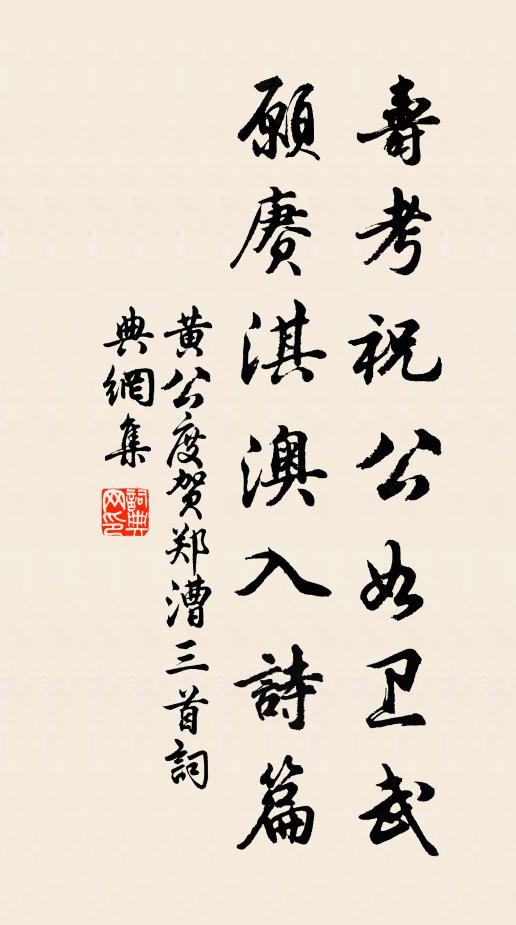 壽考祝公如卫武
願赓淇澳入詩篇
黄公度贺郑漕三首詞
典網集
詞典网印